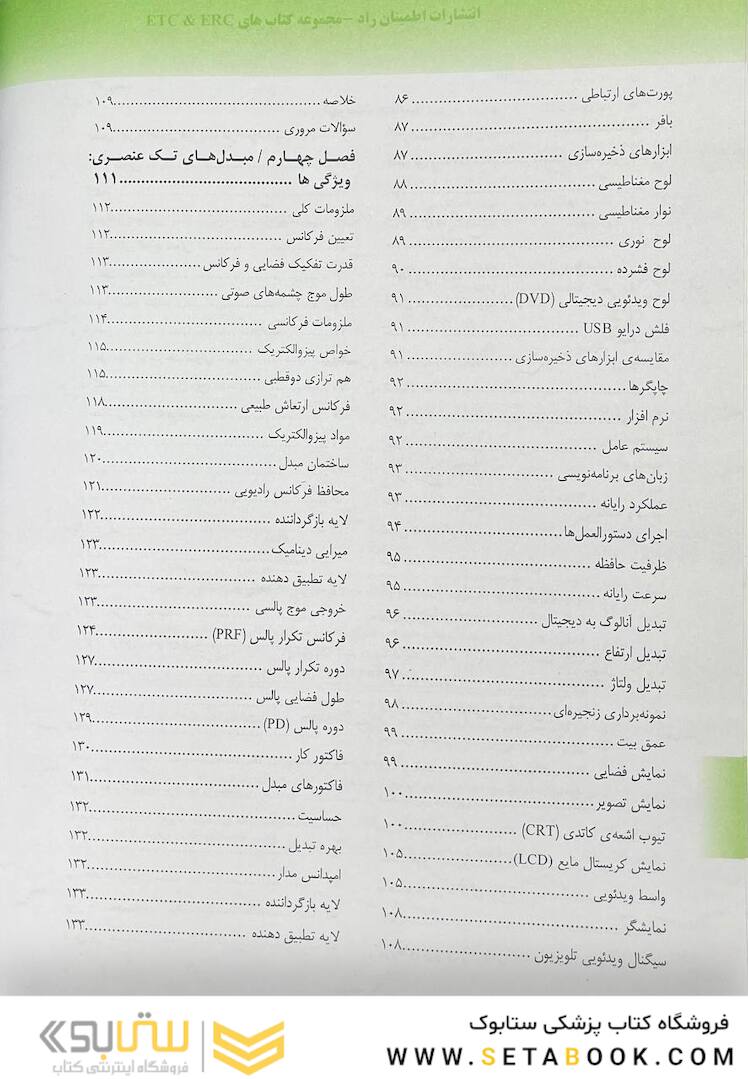 انتشارات اطمینان راد - مجموعه کتاب های ETC & ERC
پورت‌های ارتباطی ........ ۸۶
بافر ........ ۸۷
ابزارهای ذخیره‌سازی ........ ۸۷
لوح مغناطیسی ........ ۸۸
نوار مغناطیسی ........ ۸۹
لوح نوری ........ ۸۹
لوح فشرده ........ ۹۰
لوح ویدئویی دیجیتالی (DVD) ........ ۹۱
فلش درایو USB ........ ۹۱
مقایسه‌ی ابزارهای ذخیره‌سازی ........ ۹۱
چاپگرها ........ ۹۲
نرم افزار ........ ۹۲
سیستم عامل ........ ۹۲
زبان‌های برنامه‌نویسی ........ ۹۳
عملکرد رایانه ........ ۹۳
اجرای دستورالعمل‌ها ........ ۹۴
ظرفیت حافظه ........ ۹۵
سرعت رایانه ........ ۹۵
تبدیل آنالوگ به دیجیتال ........ ۹۶
تبدیل ارتفاع ........ ۹۶
تبدیل ولتاژ ........ ۹۷
نمونه‌برداری زنجیره‌ای ........ ۹۸
عمق بیت ........ ۹۹
نمایش فضایی ........ ۹۹
نمایش تصویر ........ ۱۰۰
تیوب اشعه‌ی کاتدی (CRT) ........ ۱۰۰
نمایش کریستال مایع (LCD) ........ ۱۰۵
واسط ویدئویی ........ ۱۰۵
نمایشگر ........ ۱۰۸
سیگنال ویدئویی تلویزیون ........ ۱۰۸
خلاصه ........ ۱۰۹
سؤالات مروری ........ ۱۰۹
فصل چهارم / مبدل‌های تک عنصری:
ویژگی ها ........ ۱۱۱
ملزومات کلی ........ ۱۱۲
تعیین فرکانس ........ ۱۱۲
قدرت تفکیک فضایی و فرکانس ........ ۱۱۳
طول موج چشمه‌های صوتی ........ ۱۱۳
ملزومات فرکانسی ........ ۱۱۴
خواص پیزوالکتریک ........ ۱۱۵
هم ترازی دوقطبی ........ ۱۱۵
فرکانس ارتعاش طبیعی ........ ۱۱۸
مواد پیزوالکتریک ........ ۱۱۹
ساختمان مبدل ........ ۱۲۰
محافظ فرکانس رادیویی ........ ۱۲۱
لایه بازگرداننده ........ ۱۲۲
میرایی دینامیک ........ ۱۲۳
لایه تطبیق دهنده ........ ۱۲۳
خروجی موج پالسی ........ ۱۲۳
فرکانس تکرار پالس (PRF) ........ ۱۲۴
دوره تکرار پالس ........ ۱۲۷
طول فضایی پالس ........ ۱۲۷
دوره پالس (PD) ........ ۱۲۹
فاکتور کار ........ ۱۳۰
فاکتورهای مبدل ........ ۱۳۱
حساسیت ........ ۱۳۲
بهره تبدیل ........ ۱۳۲
امپدانس مدار ........ ۱۳۲
لایه بازگرداننده ........ ۱۳۳
لایه تطبیق دهنده ........ ۱۳۳
فروشگاه کتاب پزشکی ستابوک
WWW.SETABOOK.COM
ستابوک
فروشگاه اینترنتی کتاب